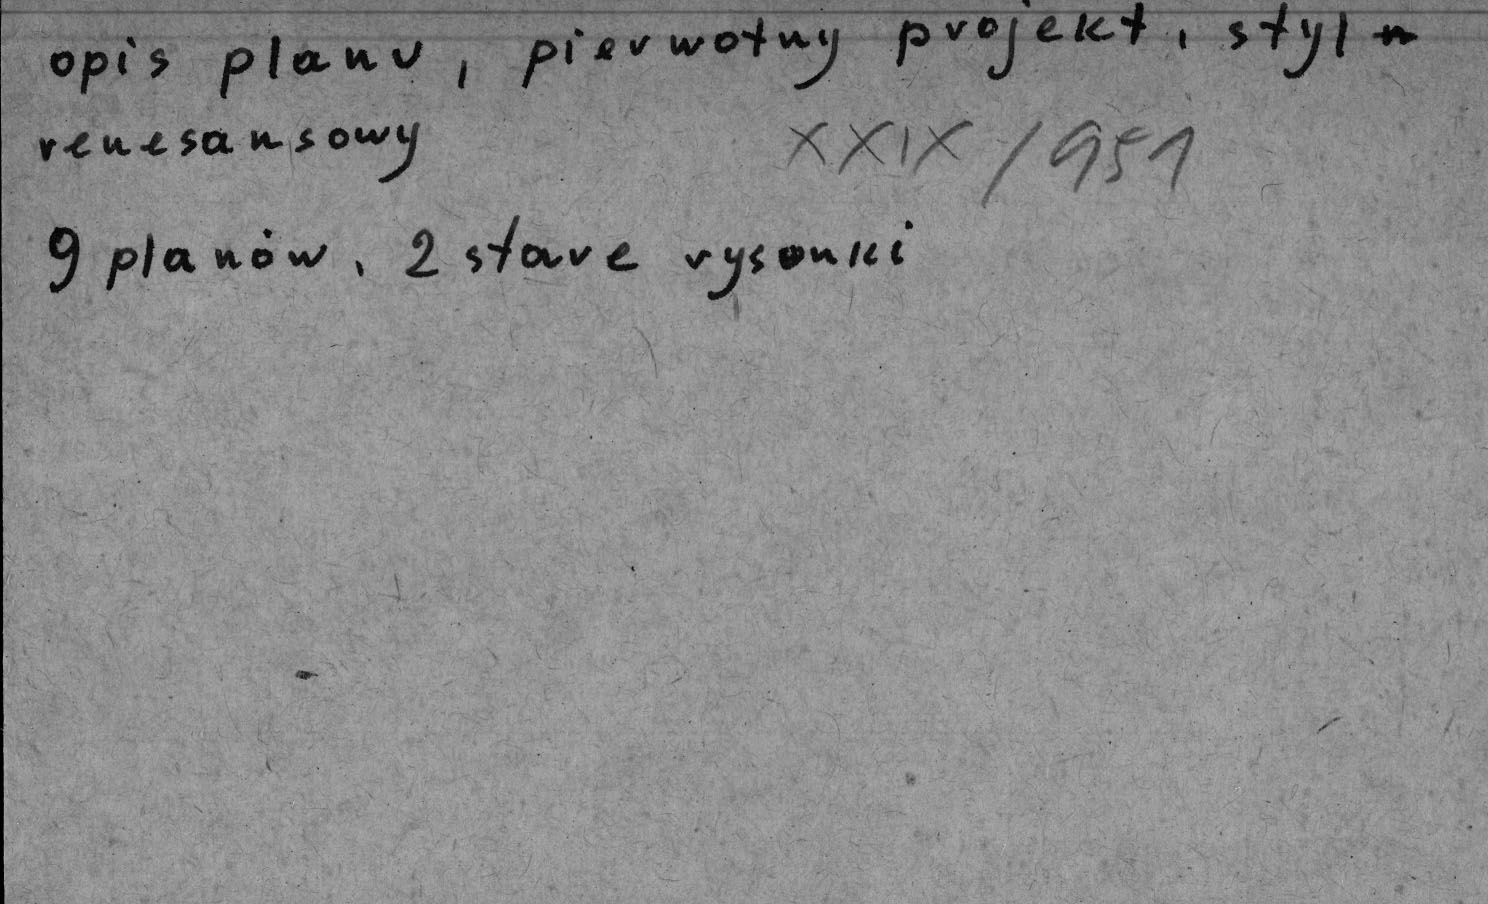 opis planu, pierwotny projekt, styl
renesansowy XXIX/951
9 planów, 2 stare rysunki